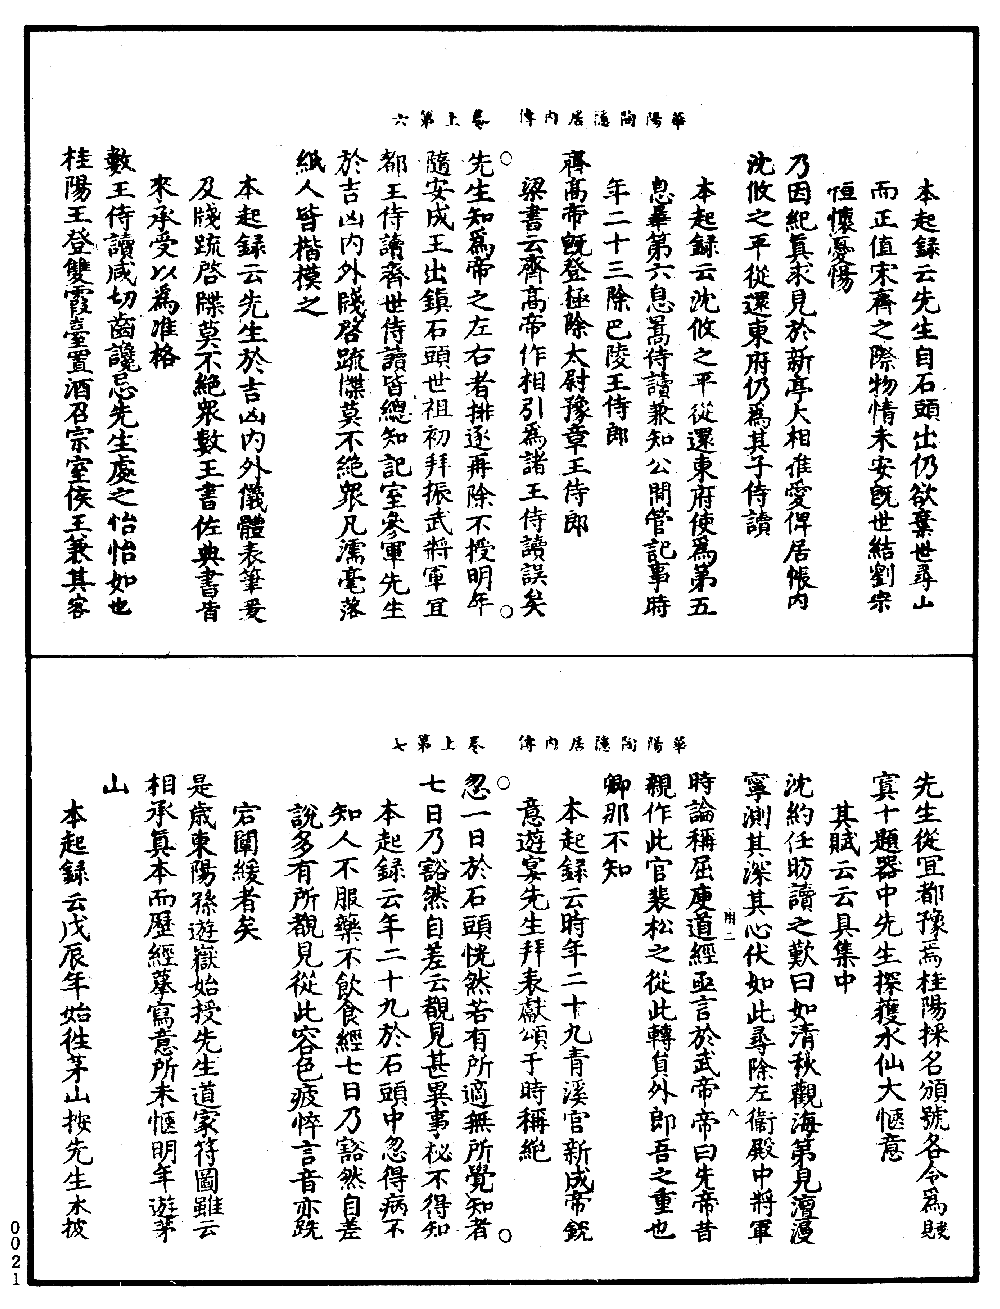 華陽陶隱居內傳　卷上第六
本起録云先生自石頭出仍欲棄世尋山
而正值宋齊之際物情未安旣世結劉宗
恒懷憂惕
乃因紀真求見於新亭大相准愛俾居帳內
沈攸之平從還東府仍爲其子侍讀
本起録云沈攸之平從還東府使爲第五
息曅第六息暠侍讀兼知公間管記事時
年二十三除巴陵王侍郎
齊高帝旣登極除太尉豫章王侍郎
梁書云齊高帝作相引爲諸王侍讀誤矣
先生知爲帝之左右者排逐再除不授明年
隨安成王出鎮石頭世祖初拜振武將軍宜
都王侍讀齊世侍讀皆總知記室參軍先生
於吉凶內外牋啓䟽牒莫不絶衆凡濡毫落
紙人皆楷模之
本起録云先生於吉凶內外儀體表筆爰
及牋䟽啓牒莫不絶衆數王書佐典書皆
來承受以爲准格
數王侍讀咸切齒讒忌先生處之怡怡如也
桂陽王登雙霞臺置酒召宗室侯王兼其客
華陽陶隱居內傳　卷上第七
先生從宜都豫焉桂陽採名頒號各令爲賦
寘十題器中先生探獲水仙大愜意
其賦云云具集中
沈約任昉讀之歎曰如清秋觀海第見澶漫
寧測其深其心伏如此尋除左衞殿中將軍
時論稱屈庾道經亟言於武帝帝曰先帝昔
親作此官裴松之從此轉貟外郎吾之重也
卿那不知
本起録云時年二十九青溪宮新成帝銳
意遊宴先生拜表獻頌于時稱絶
忽一日於石頭恍然若有所適無所覺知者
七日乃豁然自差云覩見甚異事秘不得知
本起録云年二十九於石頭中忽得病不
知人不服藥不飲食經七日乃豁然自差
說多有所覩見從此容色疲悴言音亦跌
宕闡緩者矣
是歲東陽孫遊嶽始授先生道家符圖雖云
相承真本而歷經摹寫意所未愜明年遊茅
山
本起録云戊辰年始往茅山按先生木披
用二
八
0021